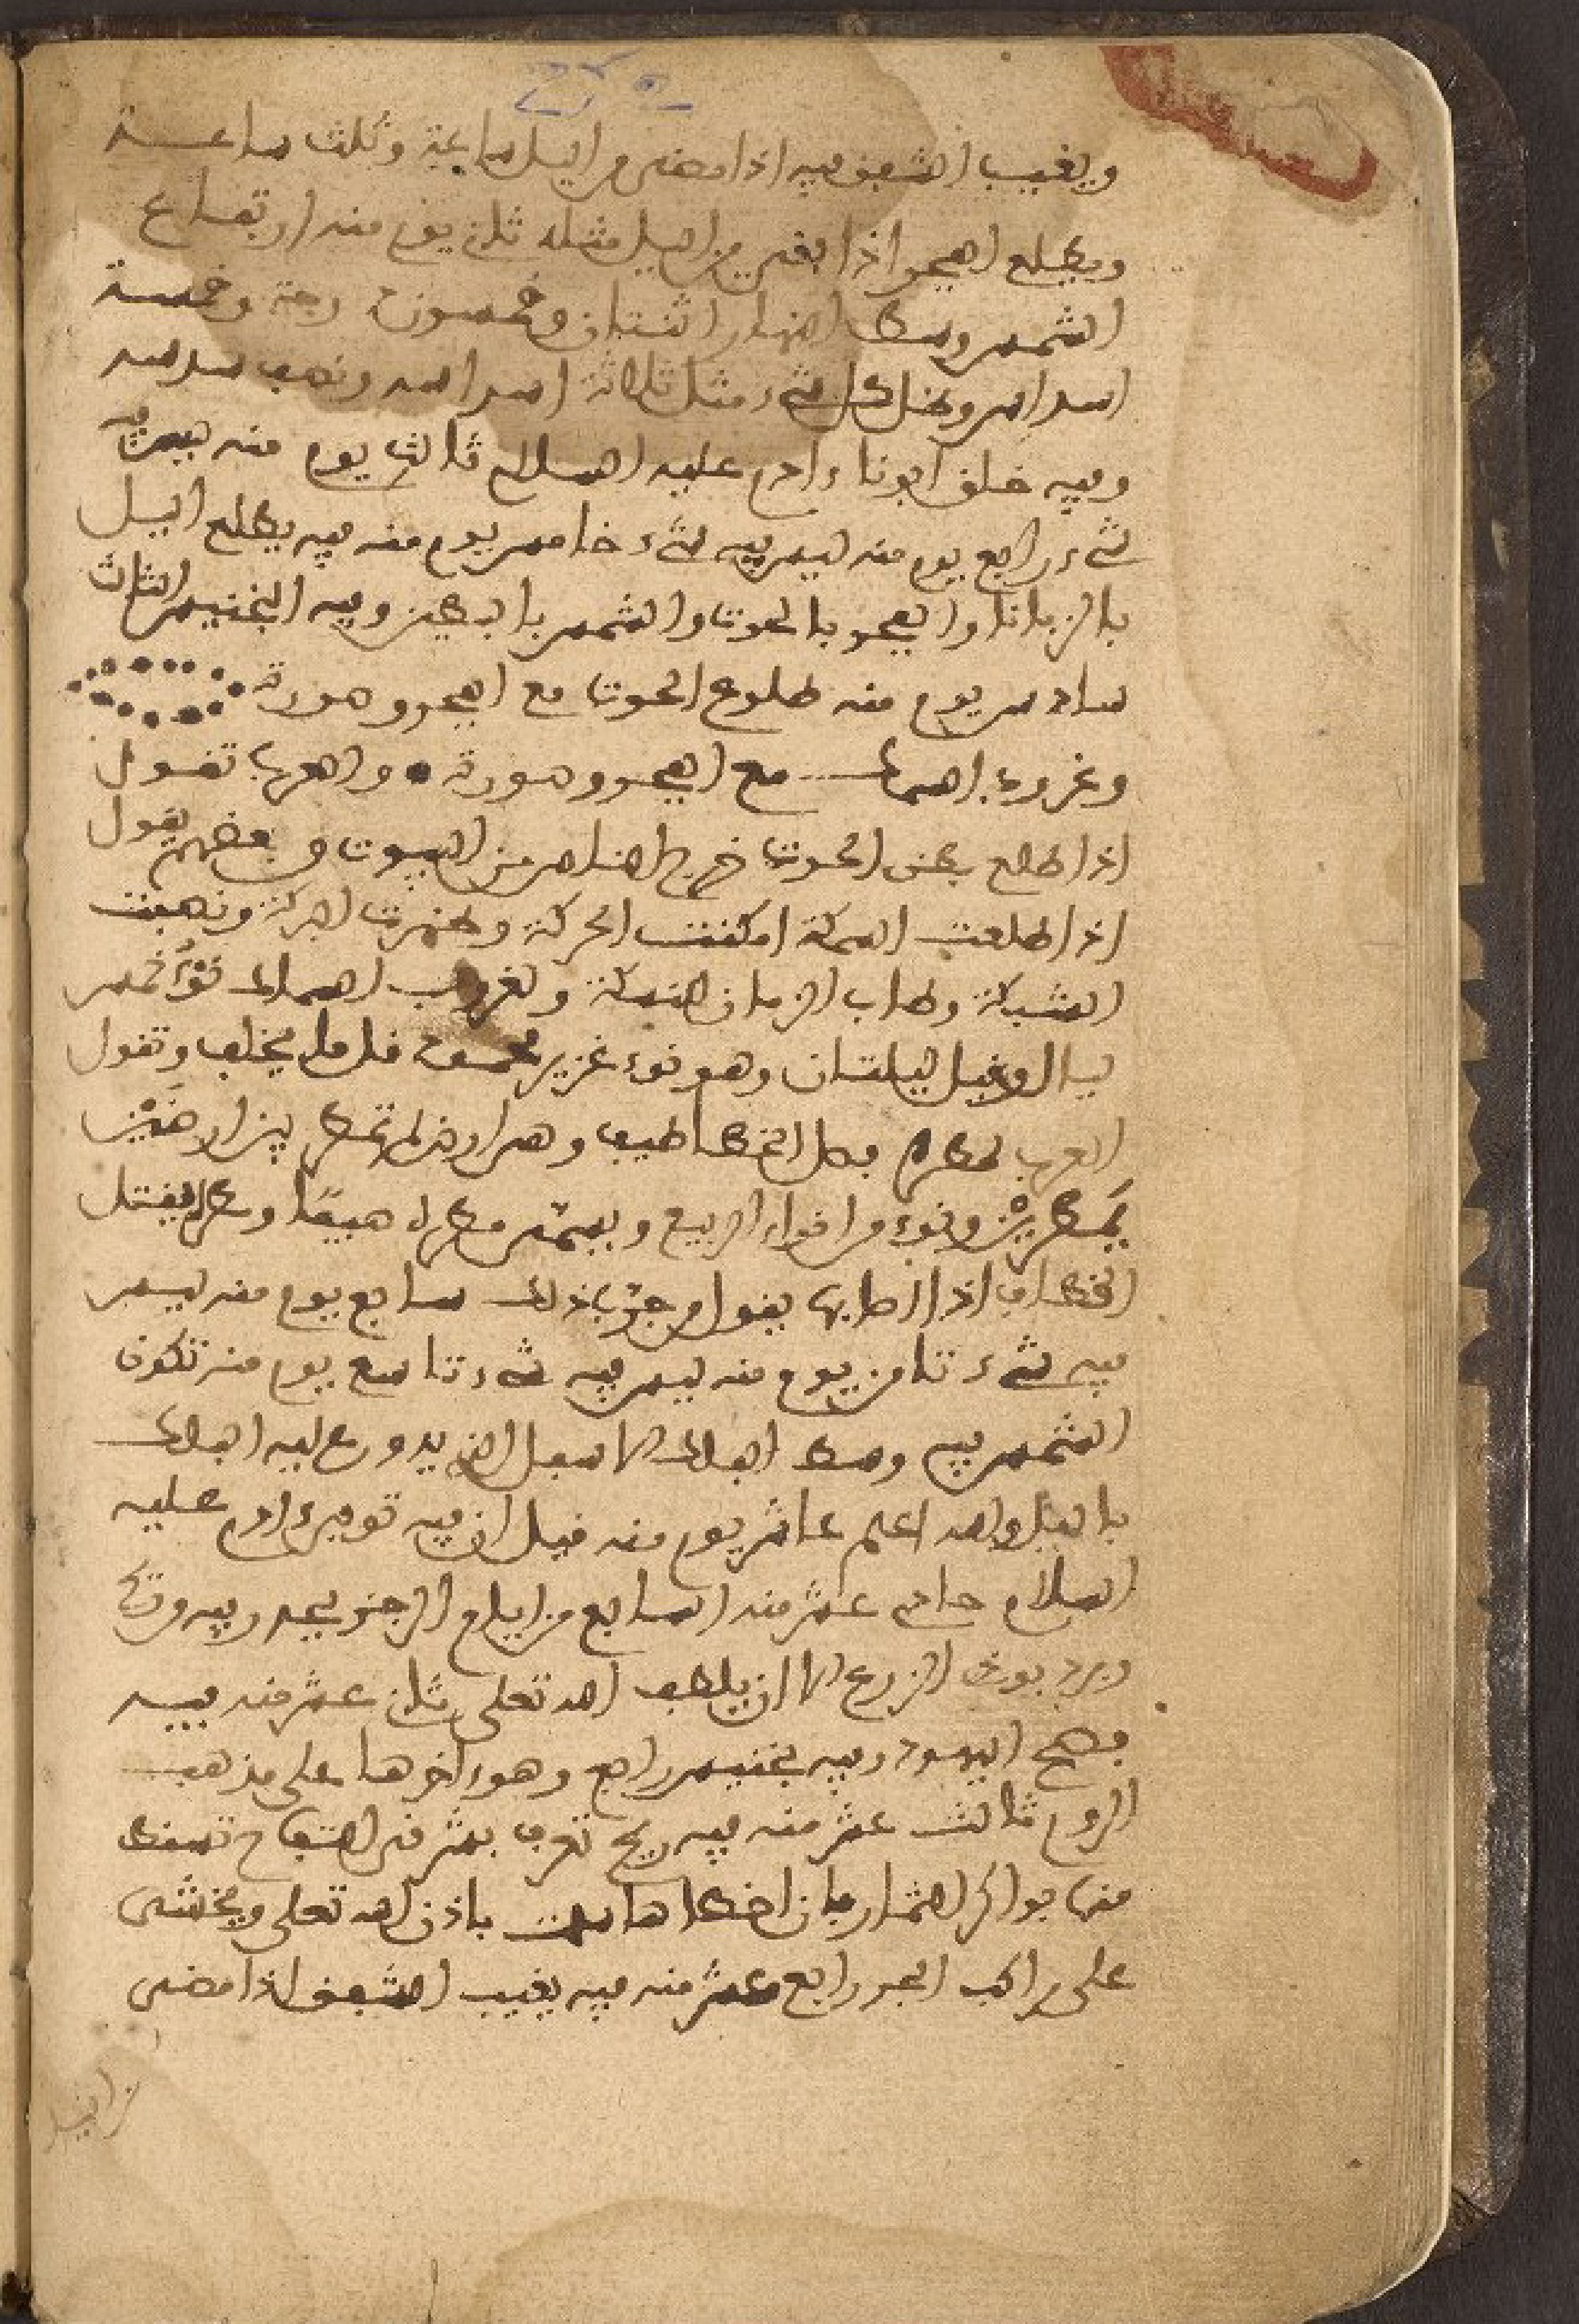 ويغيب الشفق فيه اذا مضى من اليل ساعة وثلث ساعـة
ويطلع الفجر اذا بقى من اليل مثله ثلن يوم منه ارتفاع
الشمس وسط النهار اثنتان وخمسون درجة وخمسة
اسداس وظل كل شيء مثل ثلاثة اسداسه ونصف سدسه
وفيه خلق ابونا ءادم عليه السلام ثالث يوم منه ليس فيه
شيء رابع يوم منه ليس فيه شيء خامس يوم منه فيه يطلع اليل
بالزبانا والفجر بالحوت والشمس بالبطين وفيه اليخنيس الثالث
سادس يوم منه طلوع الحوت مع الفجر وصورته
وغروب السماك مع الفجر وصورته • والعرب تقول
اذا طلع بطن الحوت خرج الناس من البيوت وبعضهم يقول
اذا طلعت السمكة امكنت الحركة وظهرت البركة ونصبت
الشبكة وطاب الزمان للنسكة ولغروب السماك نوء خمس
ليال وقيل ليلتان وهو نوء غزير محمود قل ما يخلف وتقول
العرب بكل الخطا طيف وصرارض لم تمطر بين ارضين
يمطرين ونوءه من انواء الربيع ويسمى مطره صيفا و
الخطاف اذا يقول من جرب ذلك سابع يوم منه ليس
فيه شيء ثامن يوم منه ليس فيه شيء تاسع يوم منه تكون
الشمس فيه وسط الفلك الاسفل الذي يدور عليه الفلك
بالفبل والله اعلم عاشر يوم منه قيل ان فيه توفى ءادم عليه
السلام حادى عشر منه السابع من ايام العجوز وفيه
وبرد يوذى الزرع الا ان يلطف الله تعلى ثان عشر منه فيـه
فصح اليهود وفيه يخنيس رابع وهو ءاخرها على مذهب
الروم ثالث عشر منه فيه ريح تعرف بمشرقى التفاح تسقط
منها بواكر الثمار فان اخطاها سلمت باذن الله تعلى ويخشى
على راكب البحر رابع عشر منه فيه يغيب الشفق اذا مضى
من اليل